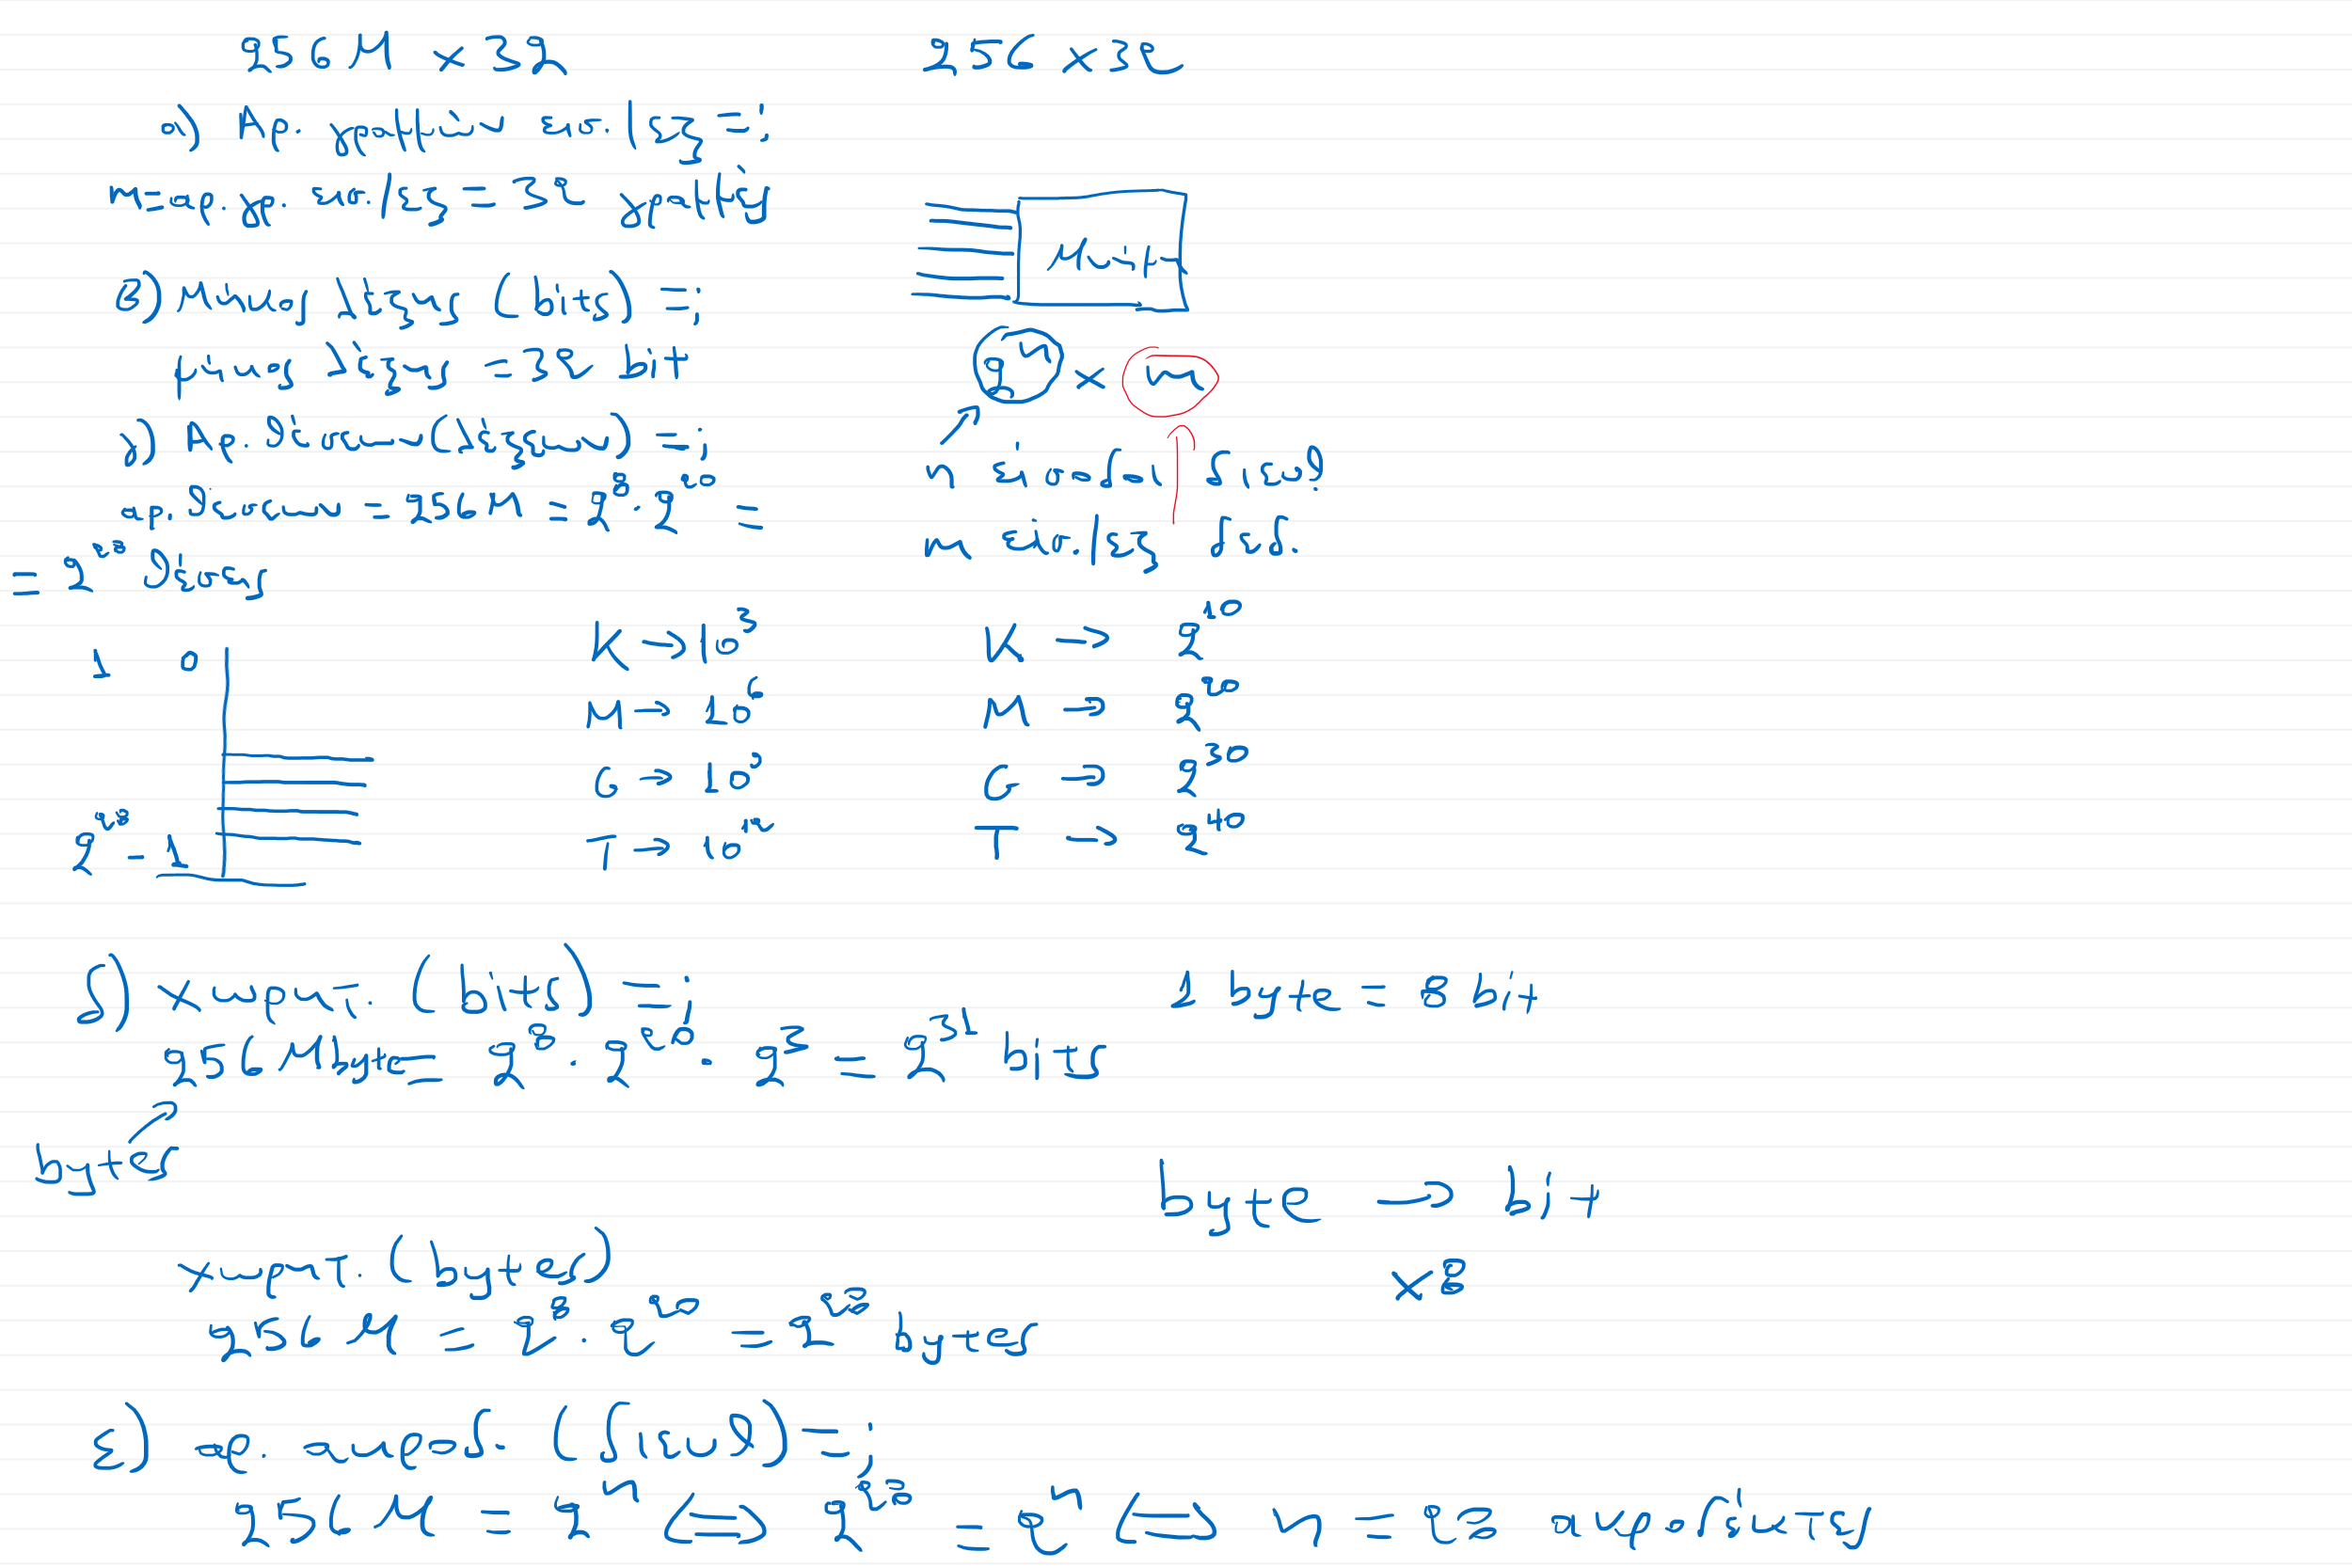 256M x32
α) Αρ. γραμμών εισ./εξ =;
m=αρ.γρ. εισ./εξ = 32 γραμμές
β) Μήκος λέξης (bits) =;
μήκος λέξης = 32 bit
γ) Αρ. θέσεων (λέξεων) =;
αρ. θέσεων = 256M = 2^8 · 2^20 =
= 2^28 θέσεις
256 x32
Μνήμη
2^n x m
n είσοδοι διευθ.
m εισ./εξ δεδ.
1 0
2^28 - 1
K → 10^3
M → 10^6
G → 10^9
T → 10^12
K → 2^10
M → 2^20
G → 2^30
T → 2^40
δ) χωρητ. (bits) =;
1 byte = 8 bit
256Mbyte = 2^8 · 2^20 · 2^3 = 2^31 bits
bytes
byte → bit
x8
χωρητ. (bytes)
256M = 2^8 · 2^20 = 2^28 bytes
ε) αρ. ακροδ. (διευθ) =;
256M = 2^n <=> 2^28 = 2^n <=> n = 28 ακροδέκτες